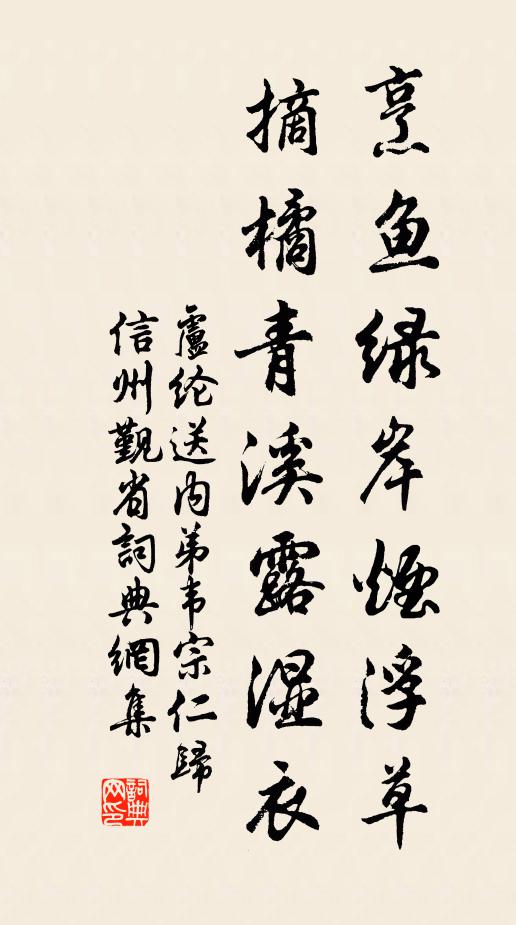 烹鱼绿岸煙浮草
摘橘青溪露湿衣
盧纶送内弟韦宗仁歸
信州觐省詞典網集
詞典网印